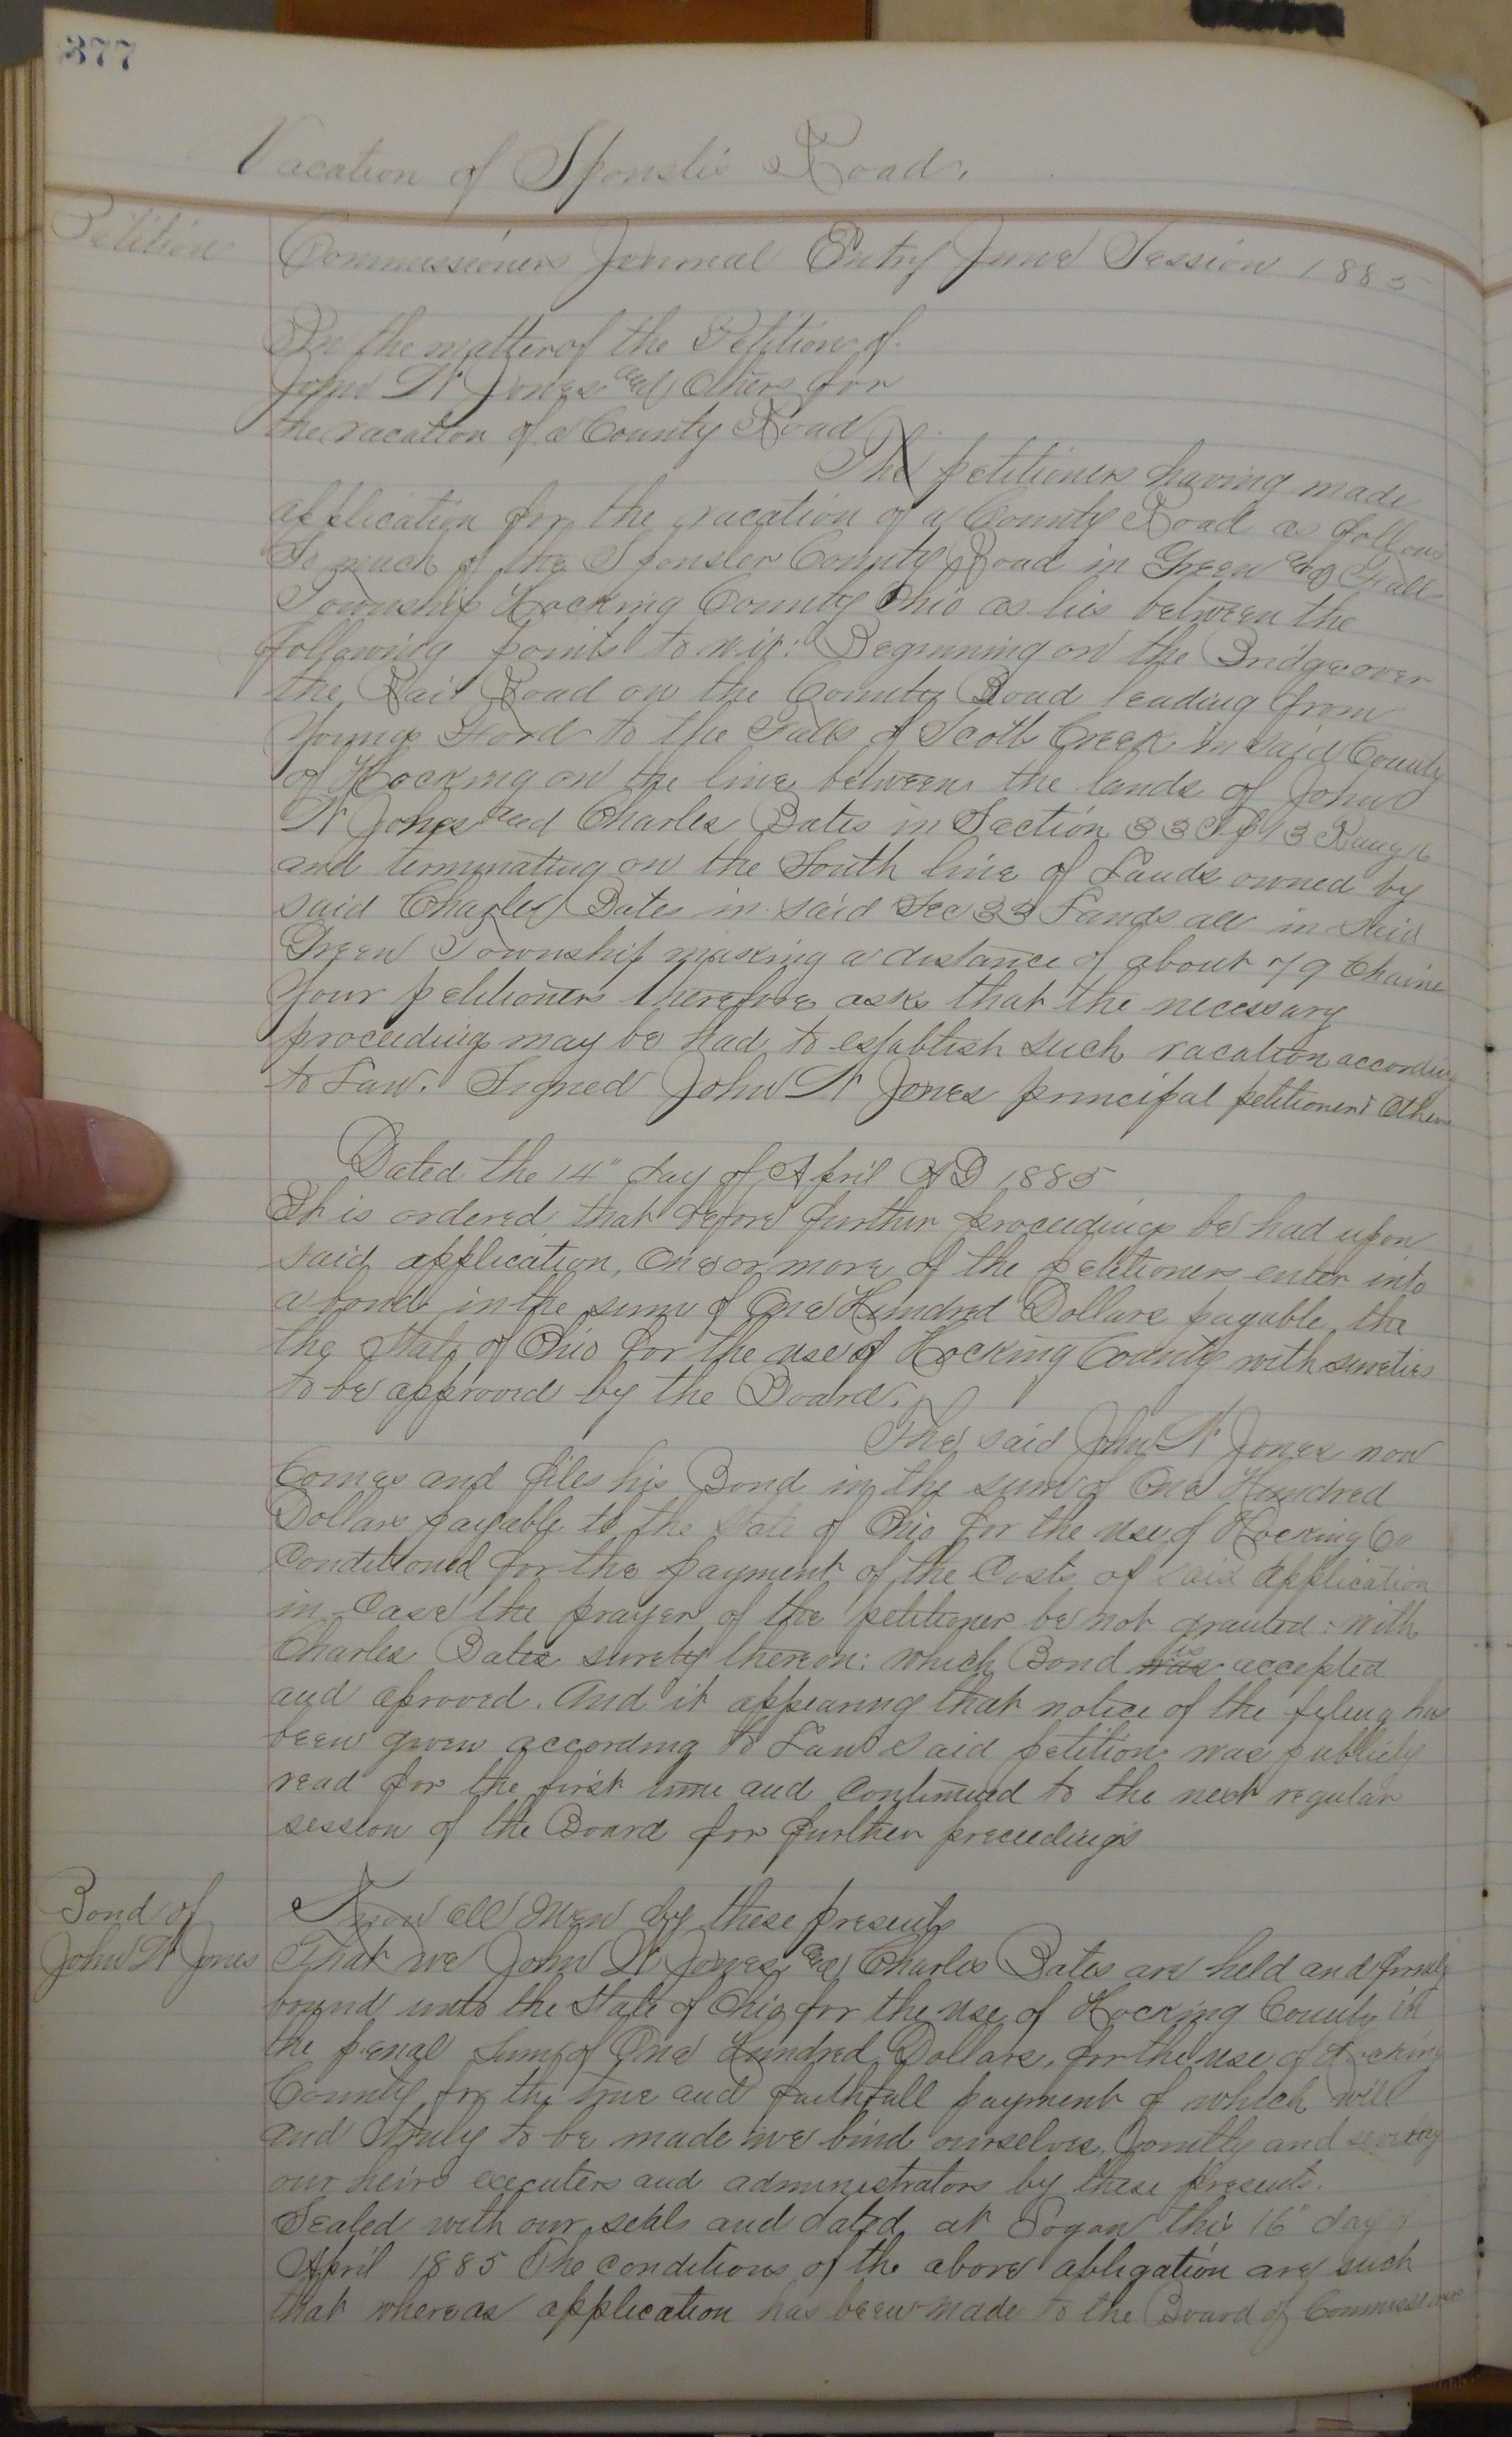 377
Vacation of Sponsler Road.
Petition
Commissioners Journal Entry June Session 1885
In the matter of the Petition of
John W Jones and Others for
the vacation of a County Road
The petitioners having made
application for the vacation of a County Road as follows
So much of the Sponsler County Road in Green and Falls
Township Hocking County Ohio as lies between the
following points to wit: Beginning on the Bridge over
the Rail Road on the County Road leading from
Youngs Ford to the Falls of Scott Creek in said County
of Hocking on the line between the lands of John
W Jones and Charles Bates in Section 33 Tp 13 Rang 16
and terminating on the South line of Lands owned by
said Charles Bates in said Sec 33 Lands all in said
Green Township making a distance of about 79 Chains
Your petitioners therefore asks that the necessary
proceedings may be had to establish such vacation according
to Law. Signed John W Jones principal petitioner & Others
Dated the 14" day of April AD 1885
It is ordered that before further proceedings be had upon
said application, one or more of the petitioners enter into
a bond in the sum of One Hundred Dollars payable the
the State of Ohio for the use of Hocking County with sureties
to be approved by the Board.
The said John W Jones now
Comes and files his Bond in the sum of One Hundred
Dollars payable to the State of Ohio for the use of Hocking Co
Conditioned for the payment of the Costs of said application
in Case the prayer of the petitioner be not granted: with
Charles Bates surety thereon: which Bond was is accepted
and aproved. And it appearing that notice of the fileing has
been given according to Law said petition was publicly
read for the first time and Continued to the next regular
session of the Board for further preceedings
Bond of
John W Jones
Know all Men by these presents
That we John W Jones and Charles Bates are held and firmly
bound unto the State of Ohio for the use of Hocking County in
the penal Sum of One Hundred Dollars, for the use of Hocking
County for the true and faithfull payment of which will
and truly to be made we bind ourselves, Jointly and severaly
our heirs executers and administrators by these presents.
Sealed with our seals and dated at Logan this 16" day of
April 1885 The conditions of the above abligation are such
that whereas application has been made to the Board of Commissioners